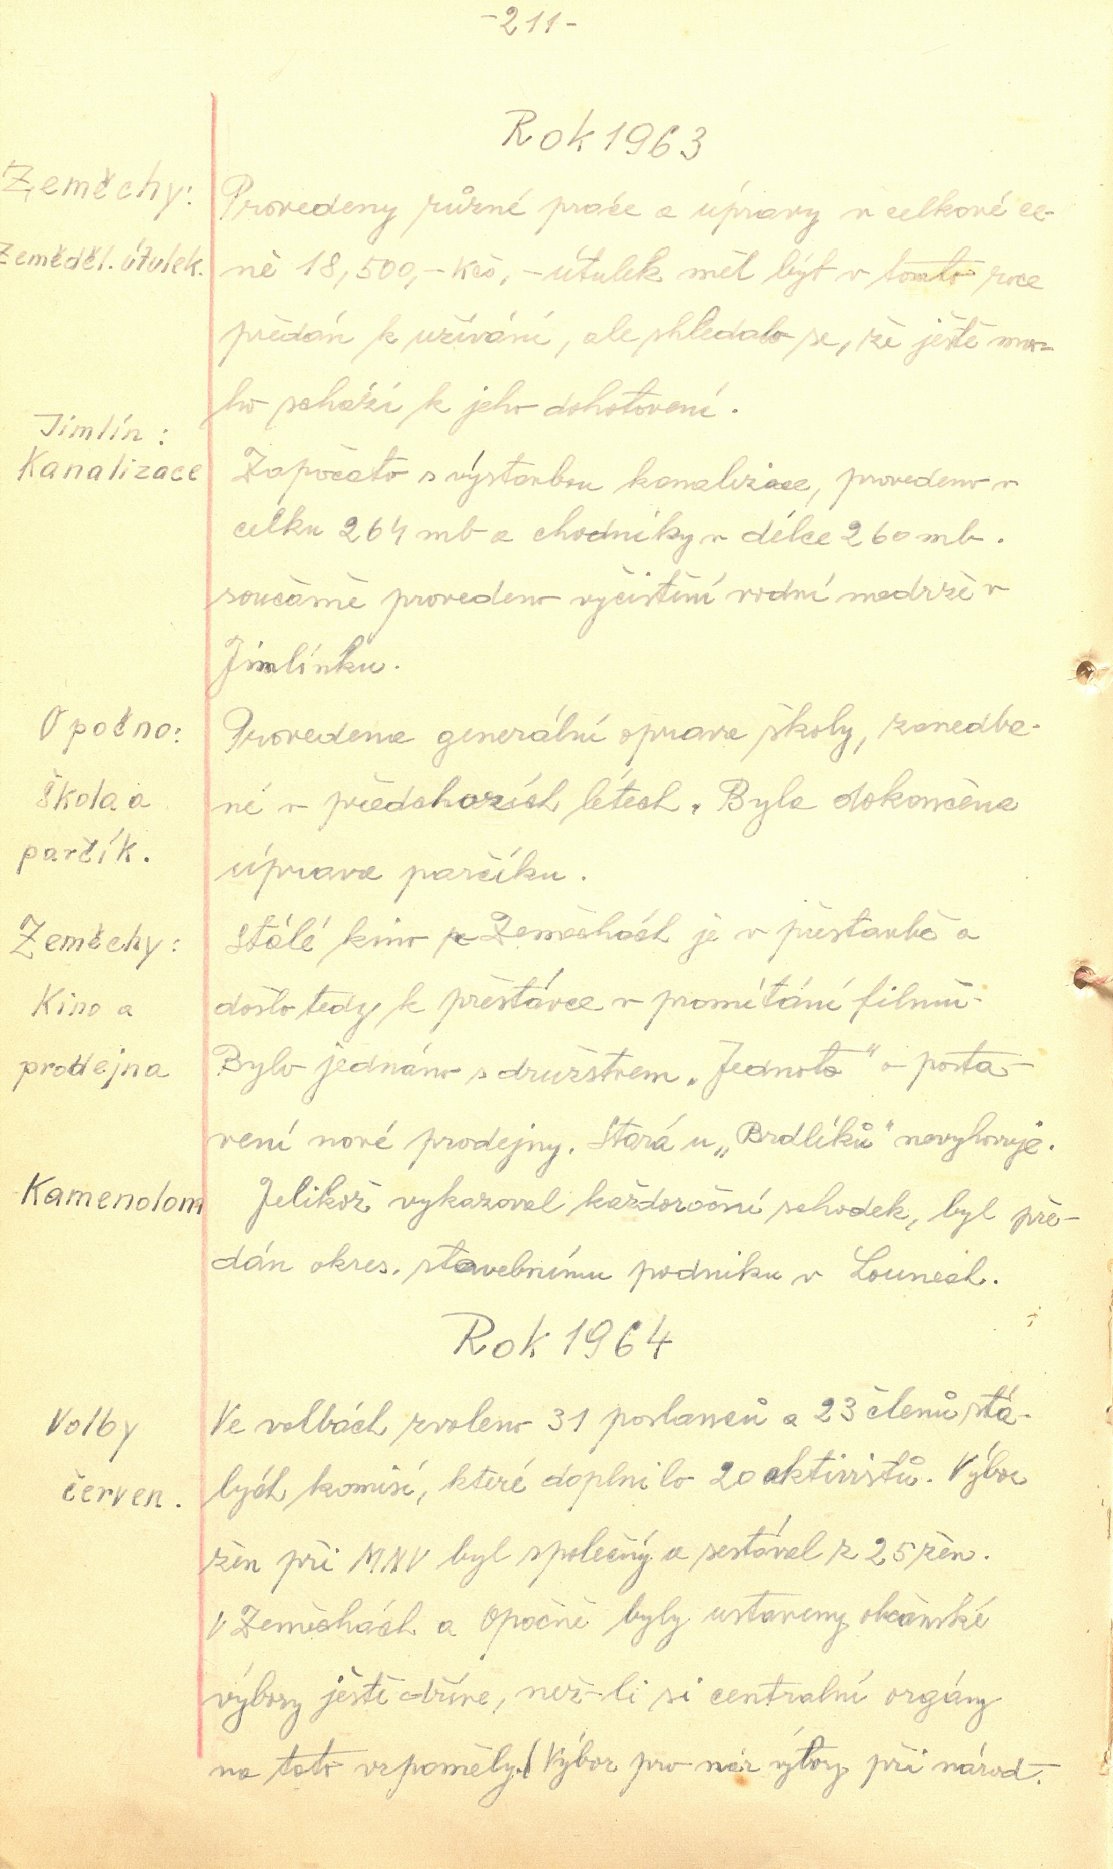 -211-
Rok 1963
Zeměchy:
Provedeny různé práce a úpravy v celkové ce-
Zeměděl. útulek.
ně 18,500,- Kčs, - útulek měl být v tomto roce
předán k užívání, ale shledalo se, že ještě mno-
ho schází k jeho dohotovení.
Jimlín:
Kanalizace
Započato s výstavbou kanalizace, provedeno v
celku 264 mb a chodníky v délce 260 mb.
současně provedeno vyčistění vodní nádrže v
Jimlínku.
Opočno:
Provedena generální oprava školy, zanedba-
škola a
né v předchozích létech. Byla dokončena
parčík.
úprava parčíku.
Zeměchy:
Stálé kino v Zeměchách je v přestavbě a
Kino a
došlo tedy k přestávce v promítání filmů.
prodejna
Bylo jednáno s družstvem „Jednota" o posta-
vení nové prodejny. Stará u „Brdlíků" nevyhovuje.
Kamenolom
Jelikož vykazoval každoroční schodek, byl pře-
dán okres. stavebnímu podniku v Lounech.
Rok 1964
Volby
Ve volbách zvoleno 31 poslanců a 23 členů stá-
červen.
lých komisí, které doplnilo 20 aktivistů. Výbor
žen při MNV byl společný a sestával z 25 žen.
V Zeměchách a Opočně byly ustaveny občanské
výbory ještě dříve, než-li si centralní orgány
na toto vzpoměly. (Výbor pro nár výbory při národ.